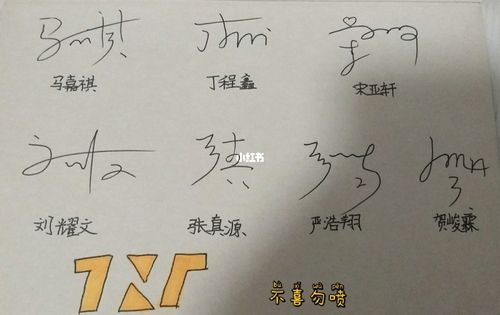 马嘉祺 丁程鑫 宋亚轩
小红书
刘耀文 张真源 严浩翔 贺峻霖
TNT
bù xǐ wù pēn
不喜勿喷